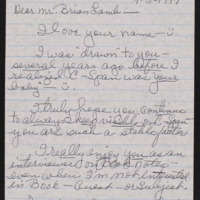 Dear Mr. Brian Lamb —
I love your name —
I was "drawn" to you —
several years ago before I
realized C-Span was "your
baby" —
I truly hope you continue
to always
you are such a stable factor
I really enjoy you as an
interviewer on Book Notes —
even when I'm not interested
in Book — Guest — or Subject.